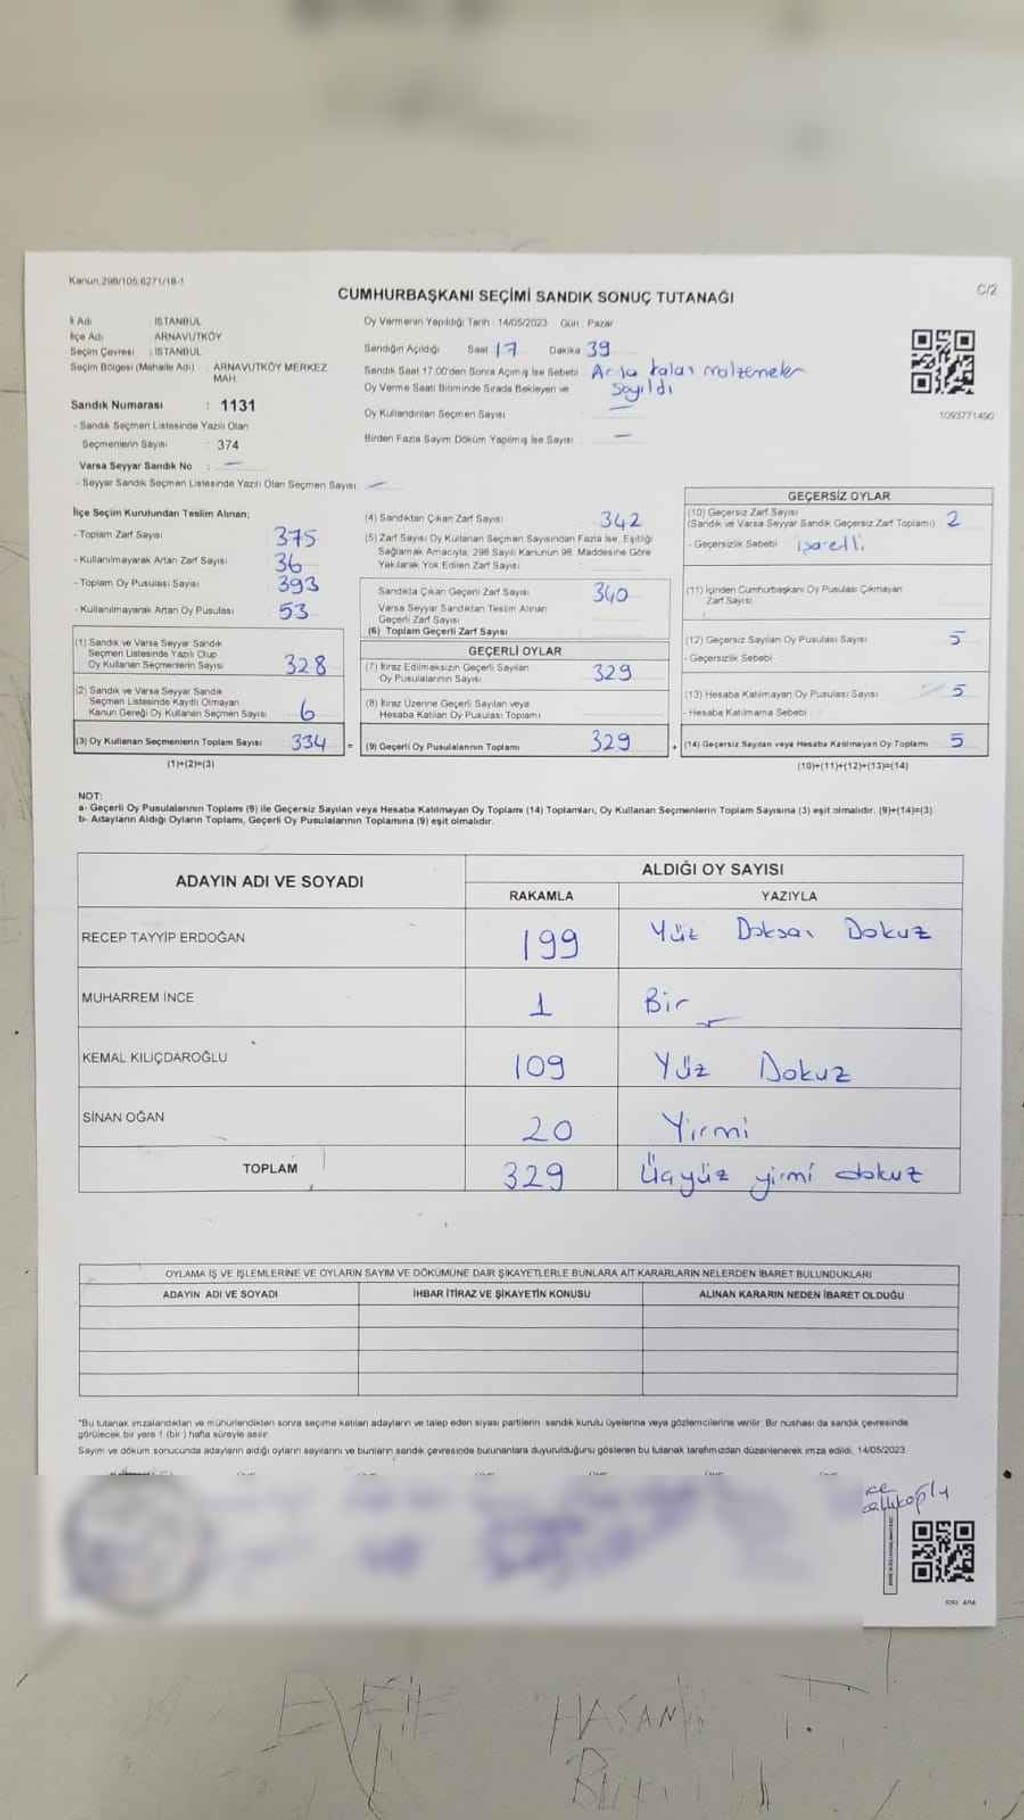 Kanun 298/105 6271/18-1
CUMHURBAŞKANI SEÇİMİ SANDIK SONUÇ TUTANAĞI
C/2
İl Adı : İSTANBUL
İlçe Adı : ARNAVUTKÖY
Seçim Çevresi : İSTANBUL
Seçim Bölgesi (Mahalle Adı) : ARNAVUTKÖY MERKEZ
MAH.
Sandık Numarası : 1131
- Sandık Seçmen Listesinde Yazılı Olan
Seçmenlerin Sayısı : 374
Varsa Seyyar Sandık No : —
- Seyyar Sandık Seçmen Listesinde Yazılı Olan Seçmen Sayısı —
Oy Vermenin Yapıldığı Tarih : 14/05/2023 Gün : Pazar
Sandığın Açıldığı Saat 17 Dakika 39
Sandık Saat 17.00'den Sonra Açımış İse Sebebi Arta kalan malzemeler
Oy Verme Saati Bitiminde Sırada Bekleyen ve sayıldı
Oy Kullandırılan Seçmen Sayısı —
Birden Fazla Sayım Döküm Yapılmış İse Sayısı —
1093771490
İlçe Seçim Kurulundan Teslim Alınan;
- Toplam Zarf Sayısı 375
- Kullanılmayarak Artan Zarf Sayısı 36
- Toplam Oy Pusulası Sayısı 393
- Kullanılmayarak Artan Oy Pusulası 53
(1) Sandık ve Varsa Seyyar Sandık
Seçmen Listesinde Yazılı Olup
Oy Kullanan Seçmenlerin Sayısı 328
(2) Sandık ve Varsa Seyyar Sandık
Seçmen Listesinde Kayıtlı Olmayan
Kanun Gereği Oy Kullanan Seçmen Sayısı 6
(3) Oy Kullanan Seçmenlerin Toplam Sayısı 334 =
(1)+(2)=(3)
(4) Sandıktan Çıkan Zarf Sayısı 342
(5) Zarf Sayısı Oy Kullanan Seçmen Sayısından Fazla İse, Eşitliği
Sağlamak Amacıyla, 298 Sayılı Kanunun 98. Maddesine Göre
Yakılarak Yok Edilen Zarf Sayısı
Sandıkta Çıkan Geçerli Zarf Sayısı 340
Varsa Seyyar Sandıktan Teslim Alınan
Geçerli Zarf Sayısı
(6) Toplam Geçerli Zarf Sayısı
GEÇERLİ OYLAR
(7) İtiraz Edilmeksizin Geçerli Sayılan
Oy Pusulalarının Sayısı 329
(8) İtiraz Üzerine Geçerli Sayılan veya
Hesaba Katılan Oy Pusulası Toplamı
(9) Geçerli Oy Pusulalarının Toplamı 329 +
GEÇERSİZ OYLAR
(10) Geçersiz Zarf Sayısı
(Sandık ve Varsa Seyyar Sandık Geçersiz Zarf Toplamı) 2
- Geçersizlik Sebebi işaretli
(11) İçinden Cumhurbaşkanı Oy Pusulası Çıkmayan
Zarf Sayısı
(12) Geçersiz Sayılan Oy Pusulası Sayısı 5
- Geçersizlik Sebebi
(13) Hesaba Katılmayan Oy Pusulası Sayısı 5
- Hesaba Katılmama Sebebi
(14) Geçersiz Sayılan veya Hesaba Katılmayan Oy Toplamı 5
(10)+(11)+(12)+(13)=(14)
NOT:
a- Geçerli Oy Pusulalarının Toplamı (9) ile Geçersiz Sayılan veya Hesaba Katılmayan Oy Toplamı (14) Toplamları, Oy Kullanan Seçmenlerin Toplam Sayısına (3) eşit olmalıdır. (9)+(14)=(3)
b- Adayların Aldığı Oyların Toplamı, Geçerli Oy Pusulalarının Toplamına (9) eşit olmalıdır.
ADAYIN ADI VE SOYADI
ALDIĞI OY SAYISI
RAKAMLA YAZIYLA
RECEP TAYYİP ERDOĞAN 199 Yüz Doksan Dokuz
MUHARREM İNCE 1 Bir
KEMAL KILIÇDAROĞLU 109 Yüz Dokuz
SİNAN OĞAN 20 Yirmi
TOPLAM 329 Üçyüz yirmi dokuz
OYLAMA İŞ VE İŞLEMLERİNE VE OYLARIN SAYIM VE DÖKÜMÜNE DAİR ŞİKAYETLERLE BUNLARA AİT KARARLARIN NELERDEN İBARET BULUNDUKLARI
ADAYIN ADI VE SOYADI İHBAR İTİRAZ VE ŞİKAYETİN KONUSU ALINAN KARARIN NEDEN İBARET OLDUĞU
*Bu tutanak imzalandıktan ve mühürlendikten sonra seçime katılan adayların ve talep eden siyasi partilerin sandık kurulu üyelerine veya gözlemcilerine verilir. Bir nüshası da sandık çevresinde
görülecek bir yere 1 (bir) hafta süreyle asılır.
Sayım ve döküm sonucunda adayların aldığı oyların sayılarını ve bunların sandık çevresinde bulunanlara duyurulduğunu gösteren bu tutanak tarafımızdan düzenlenerek imza edildi. 14/05/2023
HASAN